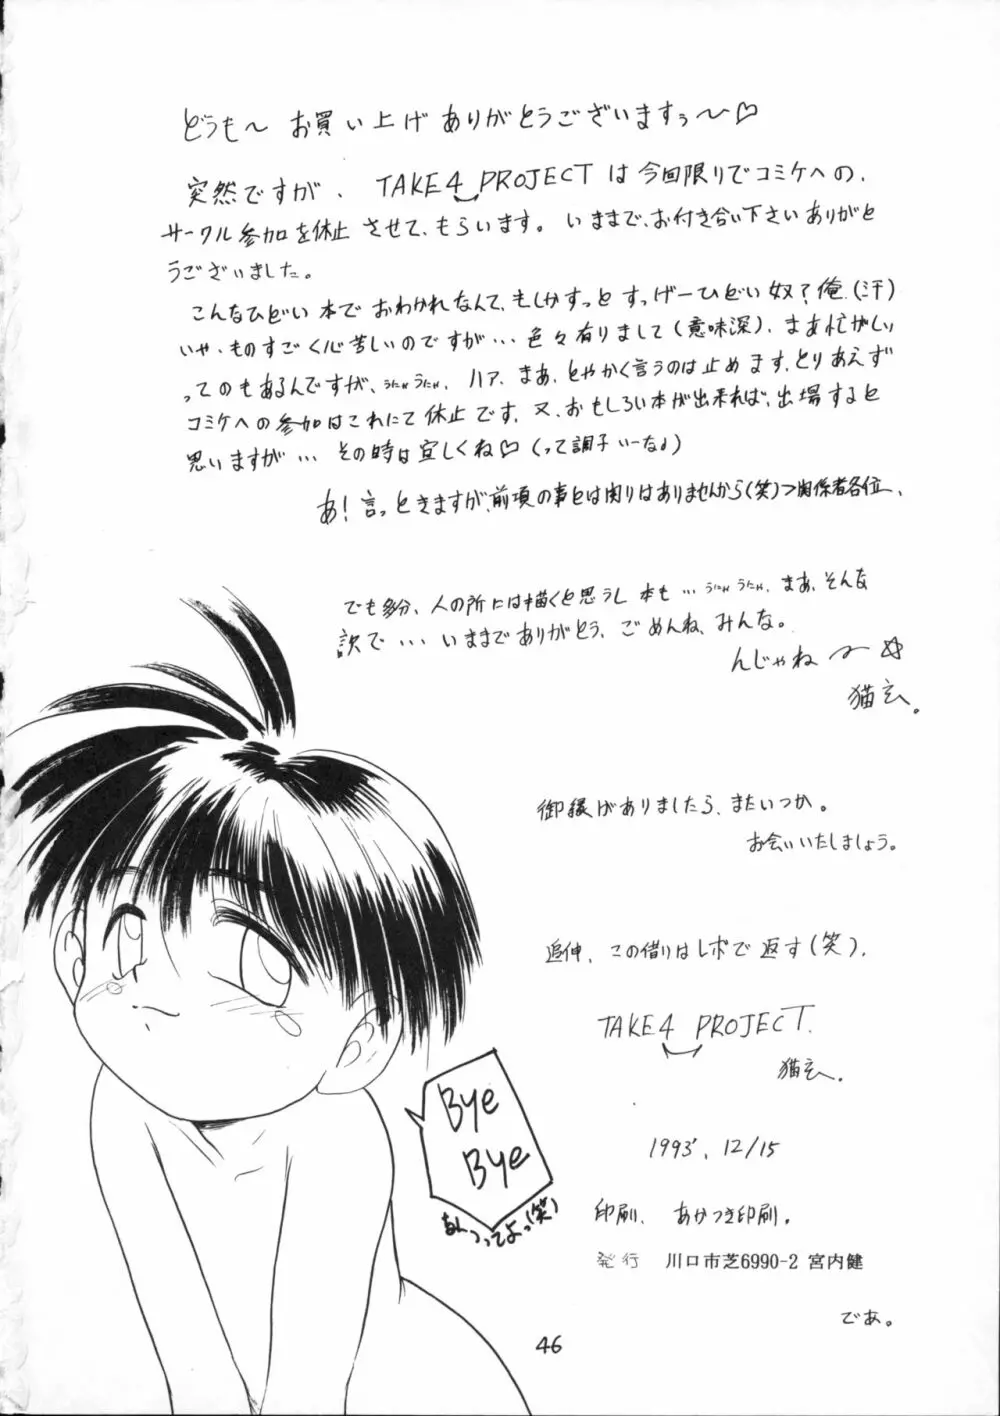 どうも〜 お買い上げありがとうございますぅ〜♡
突然ですが、TAKE4 PROJECTは今回限りでコミケへの、
サークル参加を休止させて、もらいます。いままで、お付き合い下さいありがと
うございました。
こんなひどい本でおわかれなんて、もしかすっとすっげーひどい奴?俺(汗)
いや、ものすごく心苦しいのですが…色々有りまして(意味深)、まあ忙がしい
ってのもあるんですが、うにゃうにゃ、ハア、まあ、とやかく言うのは止めます、とりあえず
コミケへの参加はこれにて休止です、又、おもしろい本が出来れば、出場すると
思いますが…その時は宜しくね♡(って調子いーな。)
あ!言っときますが、前項の事とは関りはありませんから(笑)>関係者各位、
でも多分、人の所には描くと思うし本も…うにゃうにゃ、まあ、そんな
訳で…いままでありがとう、ごめんね、みんな。
んじゃね〜☆
猫玄。
御縁がありましたら、またいつか。
お会いいたしましょう。
追伸、この借りはレボで返す(笑)、
TAKE4 PROJECT.
猫玄。
Bye
Bye
つってよっ(笑)
1993'. 12/15
印刷、あかつき印刷。
発行 川口市芝6990-2 宮内健
であ。
46